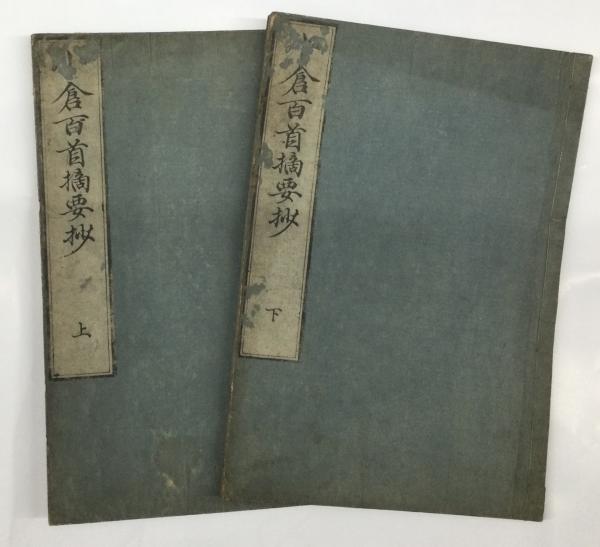 倉百首摘要抄
上
倉百首摘要抄
下